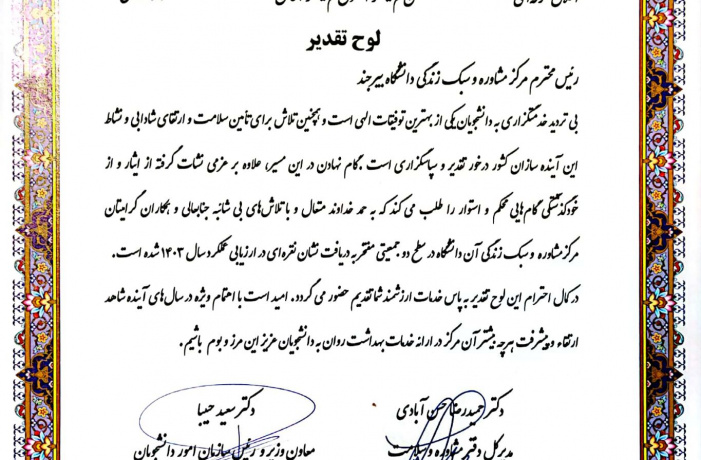 لوح تقدیر
رئیس محترم مرکز مشاوره و سبک زندگی دانشگاه بیرجند
بی تردید خدمتگزاری به دانشجویان یکی از بهترین توفیقات الهی است و همچنین تلاش برای تأمین سلامت و ارتقای شادابی و نشاط
این آینده سازان کشور درخور تقدیر و سپاسگزاری است. گام نهادن در این مسیر، علاوه بر عزمی نشات گرفته از ایثار و از
خودگذشتگی گام‌هایی محکم و استوار را طلب می کند که به حمد خداوند متعال و با تلاش‌های بی شائبه جنابعالی و همکاران گرامیتان
مرکز مشاوره و سبک زندگی آن دانشگاه در سطح دو جمعیتی مفتخر به دریافت نشان نقره‌ای در ارزیابی عملکرد سال ۱۴۰۳ شده است.
در کمال احترام این لوح تقدیر به پاس خدمات ارزشمند شما تقدیم حضور می گردد. امید است با اهتمام ویژه در سال‌های آینده شاهد
ارتقاء و پیشرفت هرچه بیشتر آن مرکز در ارائه خدمات بهداشت روان به دانشجویان عزیز این مرز و بوم باشیم.
دکتر حمیدرضا حسن آبادی
مدیرکل دفتر مشاوره و سلامت
دکتر سعید حبیبا
معاون وزیر و رئیس سازمان امور دانشجویان